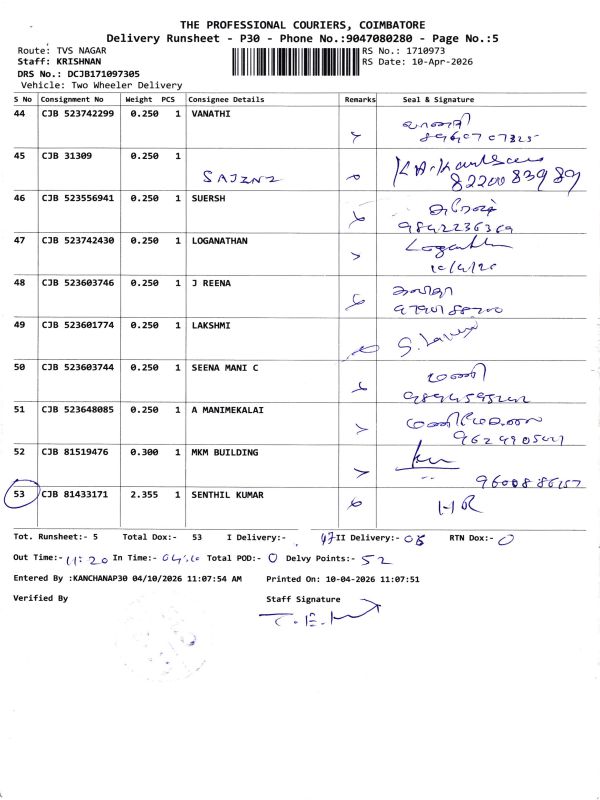 THE PROFESSIONAL COURIERS, COIMBATORE
Delivery Runsheet - P30 - Phone No.:9047080280 - Page No.:5
Route: TVS NAGAR RS No.: 1710973
Staff: KRISHNAN RS Date: 10-Apr-2026
DRS No.: DCJB171097305
Vehicle: Two Wheeler Delivery
S No Consignment No Weight PCS Consignee Details Remarks Seal & Signature
44 CJB 523742299 0.250 1 VANATHI
45 CJB 31309 0.250 1
46 CJB 523556941 0.250 1 SUERSH சுரேஷ்
9842236369
47 CJB 523742430 0.250 1 LOGANATHAN
48 CJB 523603746 0.250 1 J REENA
49 CJB 523601774 0.250 1 LAKSHMI
50 CJB 523603744 0.250 1 SEENA MANI C மணி
51 CJB 523648085 0.250 1 A MANIMEKALAI
52 CJB 81519476 0.300 1 MKM BUILDING
9600886157
53 CJB 81433171 2.355 1 SENTHIL KUMAR HR
Tot. Runsheet:- 5 Total Dox:- 53 I Delivery:- 47 II Delivery:- 06 RTN Dox:- 0
Out Time:- 11:20 In Time:- Total POD:- 0 Delvy Points:- 52
Entered By :KANCHANAP30 04/10/2026 11:07:54 AM Printed On: 10-04-2026 11:07:51
Verified By Staff Signature